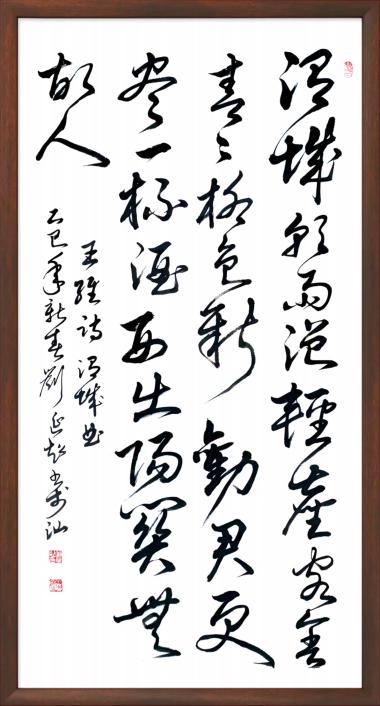 渭城朝雨浥輕塵客舍
青々柳色新勸君更
盡一杯酒西出陽關無
故人
王維詩渭城曲
乙巳年新春劉延超书於汕